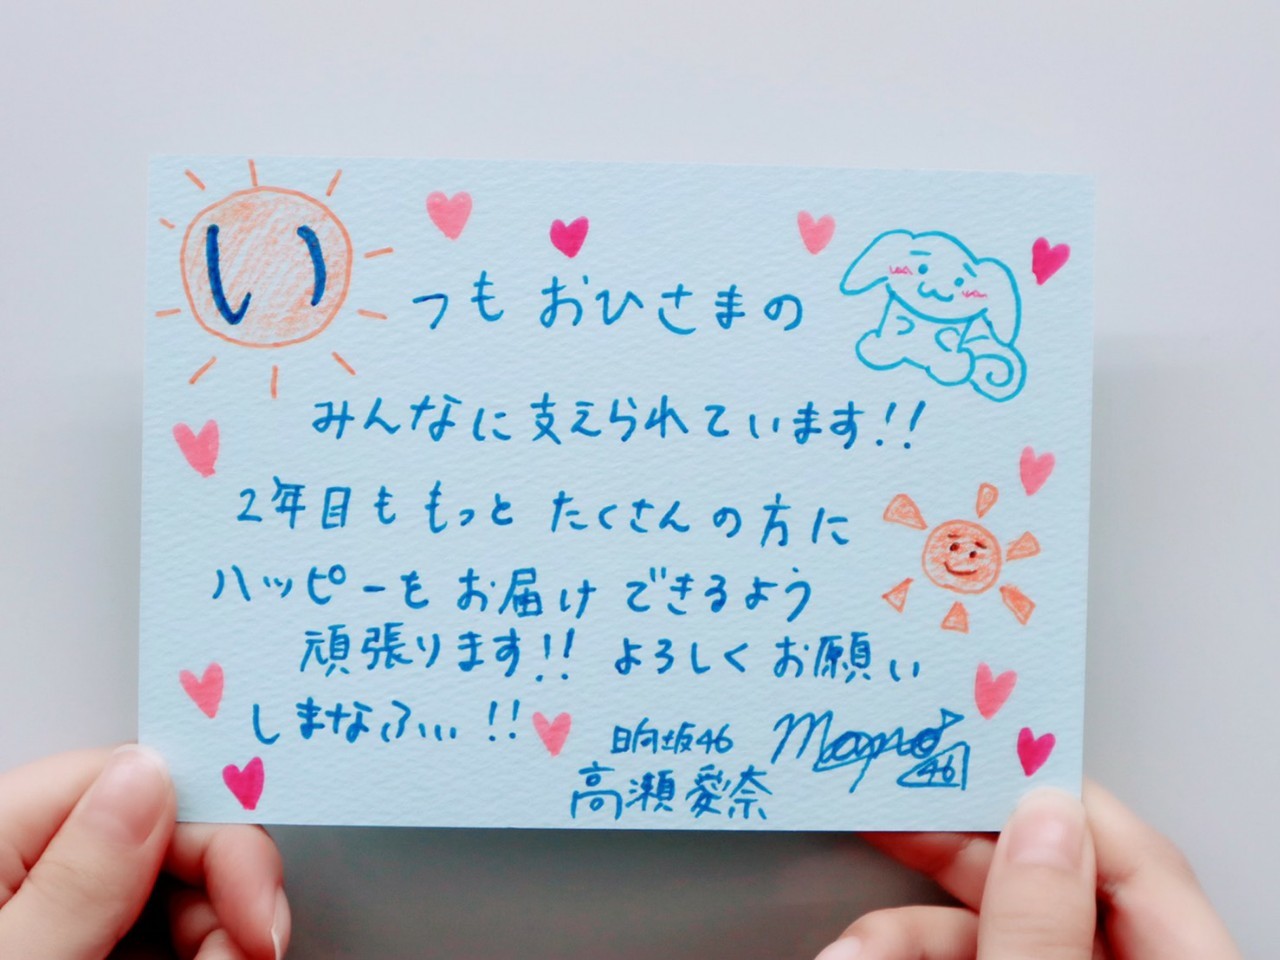 いつもおひさまの
みんなに支えられています!!
2年目ももっとたくさんの方に
ハッピーをお届けできるよう
頑張ります!!よろしくお願い
しまなふぃ!!
日向坂46
高瀬愛奈
Mana 46